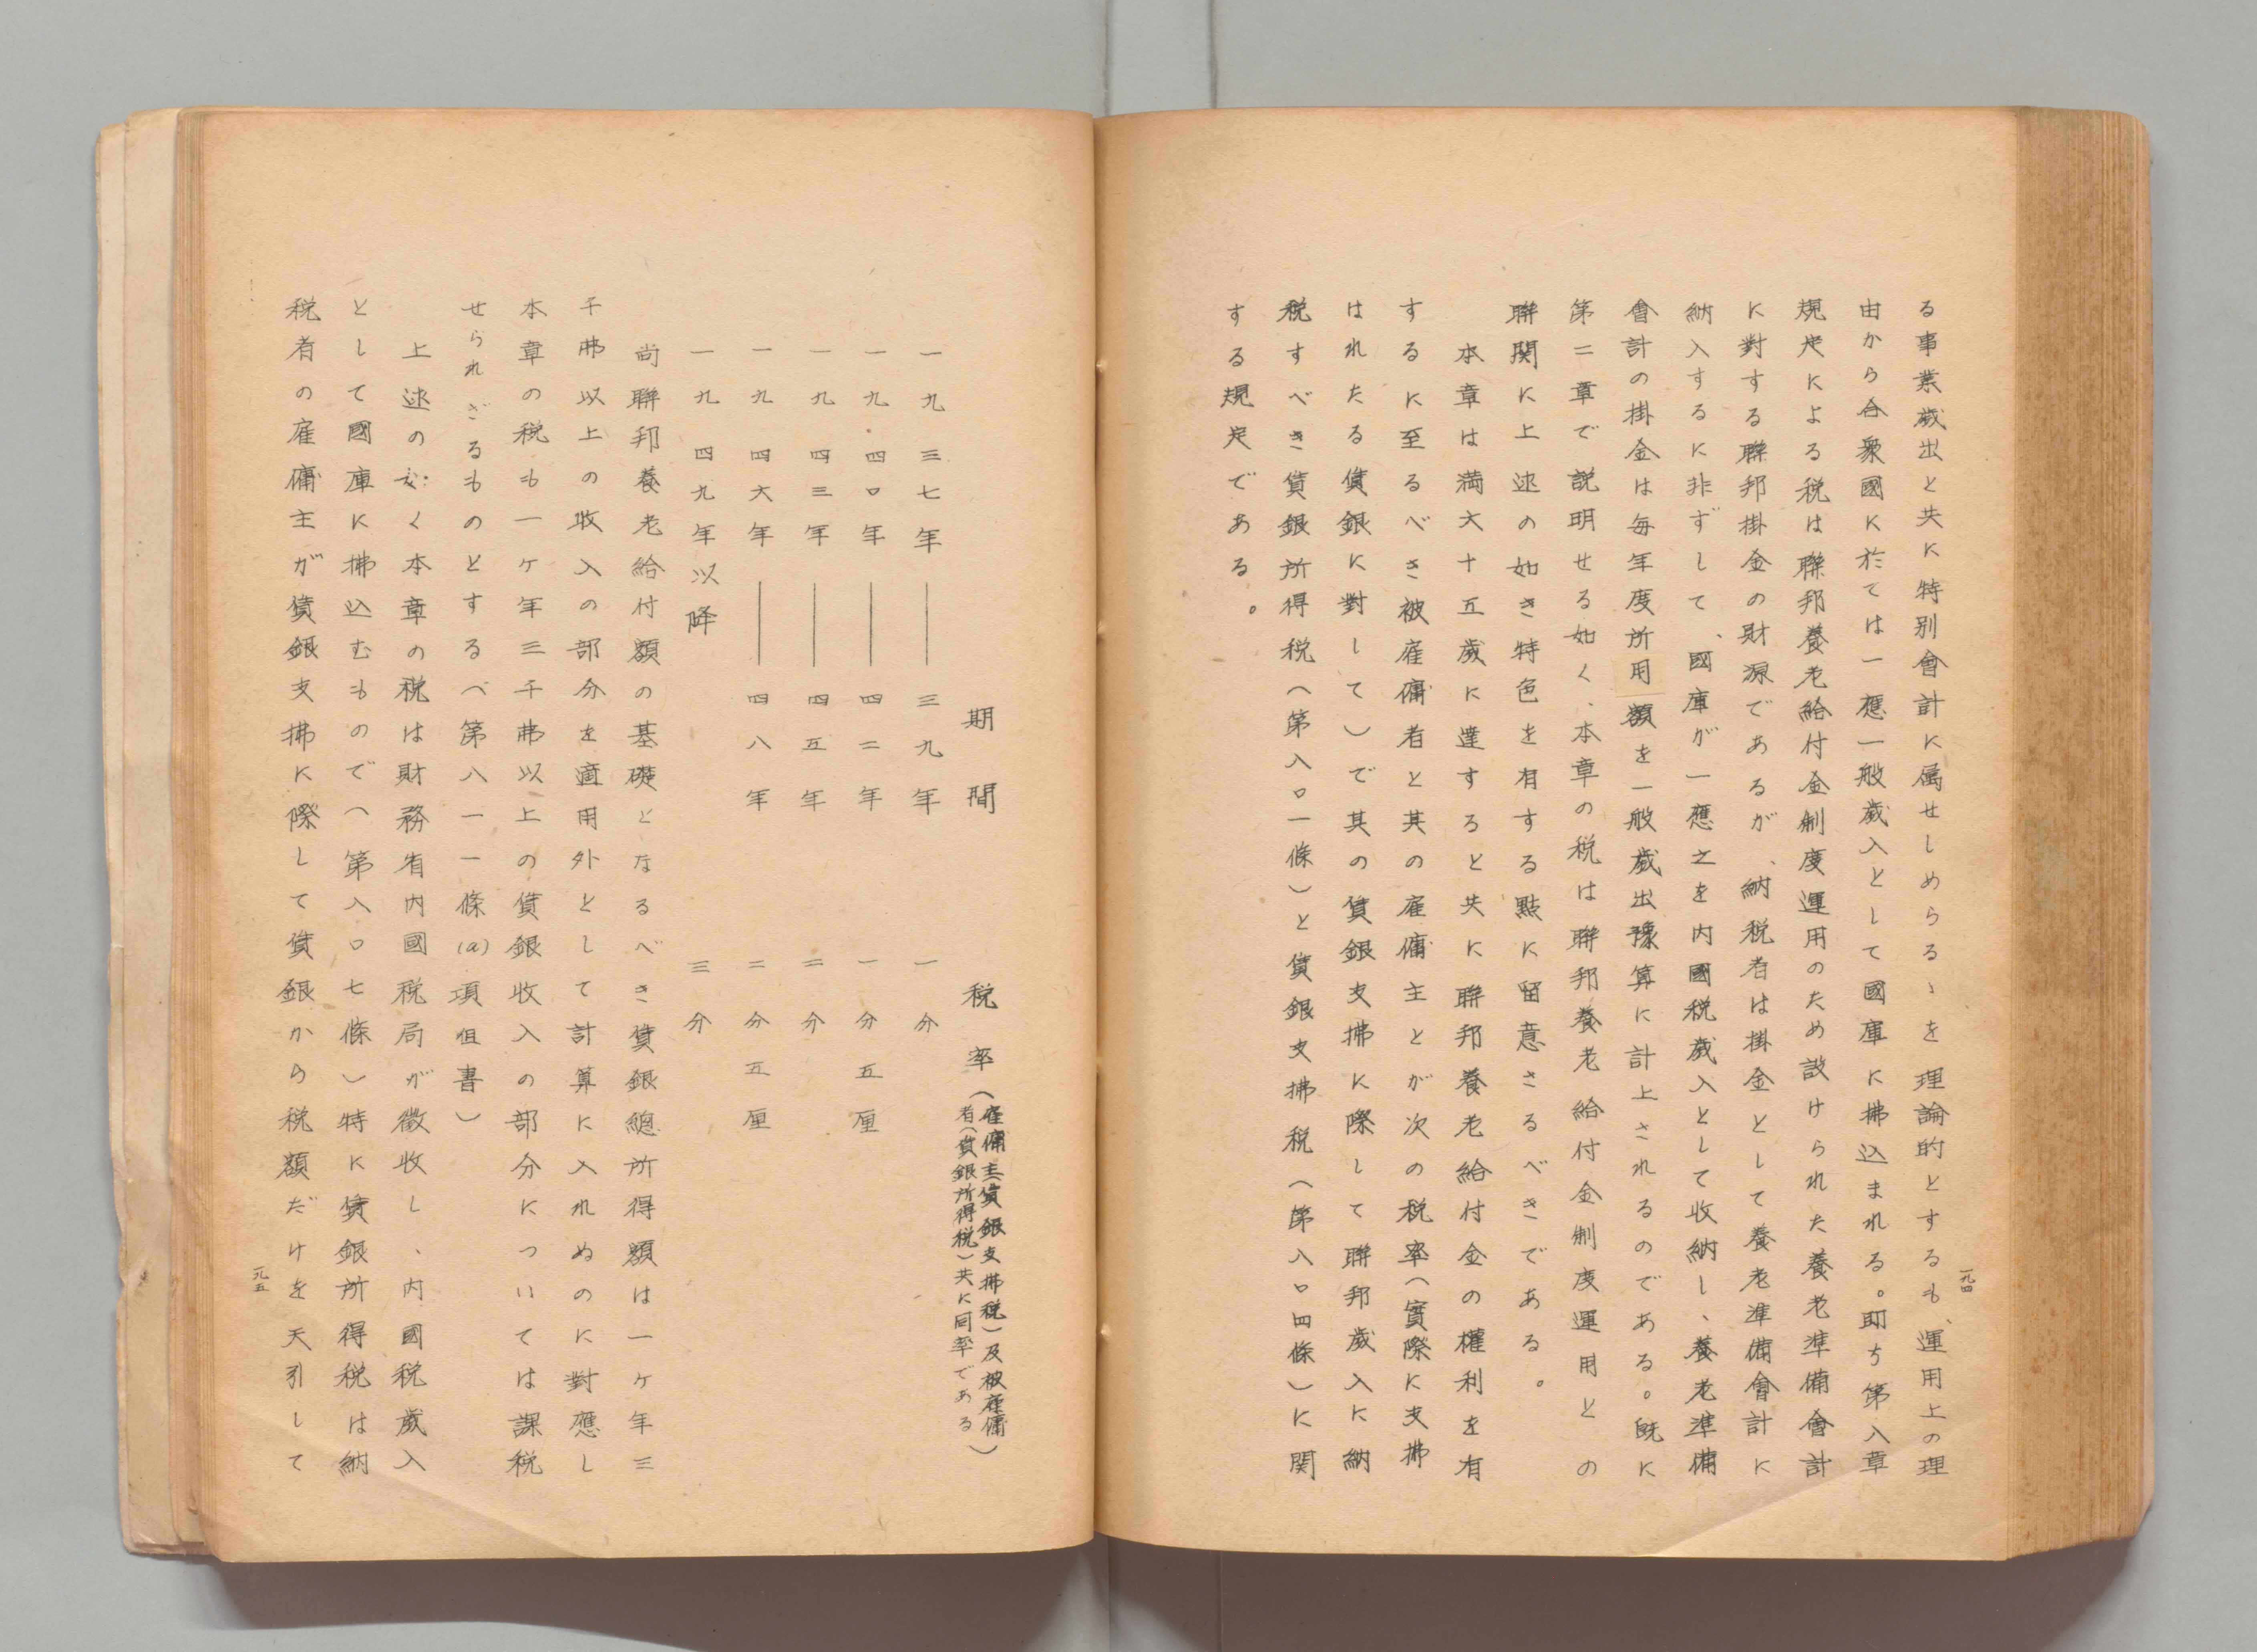 る事業歳出と共に特別會計に属せしめらるゝを理論的とするも、運用上の理
由から合衆國に於ては一應一般歳入として國庫に拂込まれる。即ち第八章
規定による税は聯邦養老給付金制度運用のため設けられた養老準備會計
に對する聯邦掛金の財源であるが、納税者は掛金として養老準備會計に
納入するに非ずして、國庫が一應之を内國税歳入として收納し、養老準備
會計の掛金は毎年度所用額を一般歳出豫算に計上されるのである。既に
第二章で説明せる如く、本章の税は聯邦養老給付金制度運用との
聯関に上述の如き特色を有する點に留意さるべきである。
本章は満六十五歳に達すると共に聯邦養老給付金の權利を有
するに至るべき被雇傭者と其の雇傭主とが次の税率（實際に支拂
はれたる賃銀に對して）で其の賃銀支拂に際して聯邦歳入に納
税すべき賃銀所得税（第八〇一條）と賃銀支拂税（第八〇四條）に関
する規定である。
一九四
期間　税率（雇傭主賃銀支拂税）及被雇傭）
者（賃銀所得税）共に同率である
一九三七年――三九年　一分
一九・四〇年――四二年　一分五厘
一九四三年――四五年　二分
一九四六年――四八年　二分五厘
一九四九年以降　三分
尚聯邦養老給付額の基礎となるべき賃銀總所得額は一ヶ年三
千弗以上の收入の部分を適用外として計算に入れぬのに對應し
本章の税も一ヶ年三千弗以上の賃銀收入の部分については課税
せられざるものとするべ第八一一條(a)項但書）
上述の如く本章の税は財務省内國税局が徴收し、内國税歳入
として國庫に拂込むもので（第八〇七條）特に賃銀所得税は納
税者の雇傭主が賃銀支拂に際して賃銀から税額だけを天引して
一九五